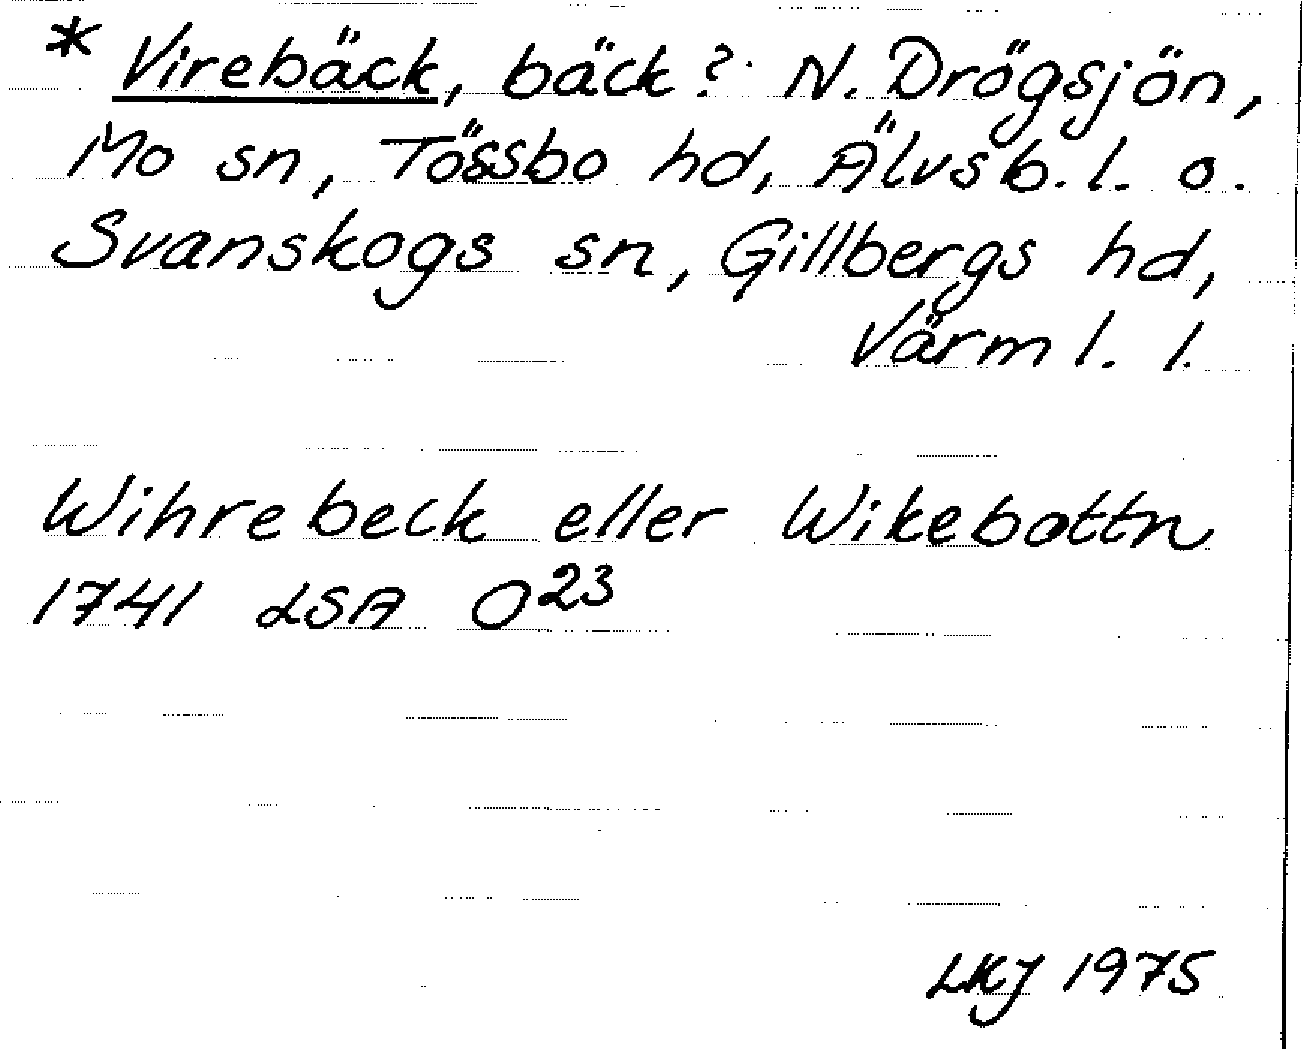 * Virebäck, bäck? N. Drögsjön,
Mo sn, Tössbo hd, Älvsb. l. o.
Svanskogs sn, Gillbergs hd,
Värml. l.
Wihrebeck eller Wikebottn
1741 LSA O23
LKJ 1975